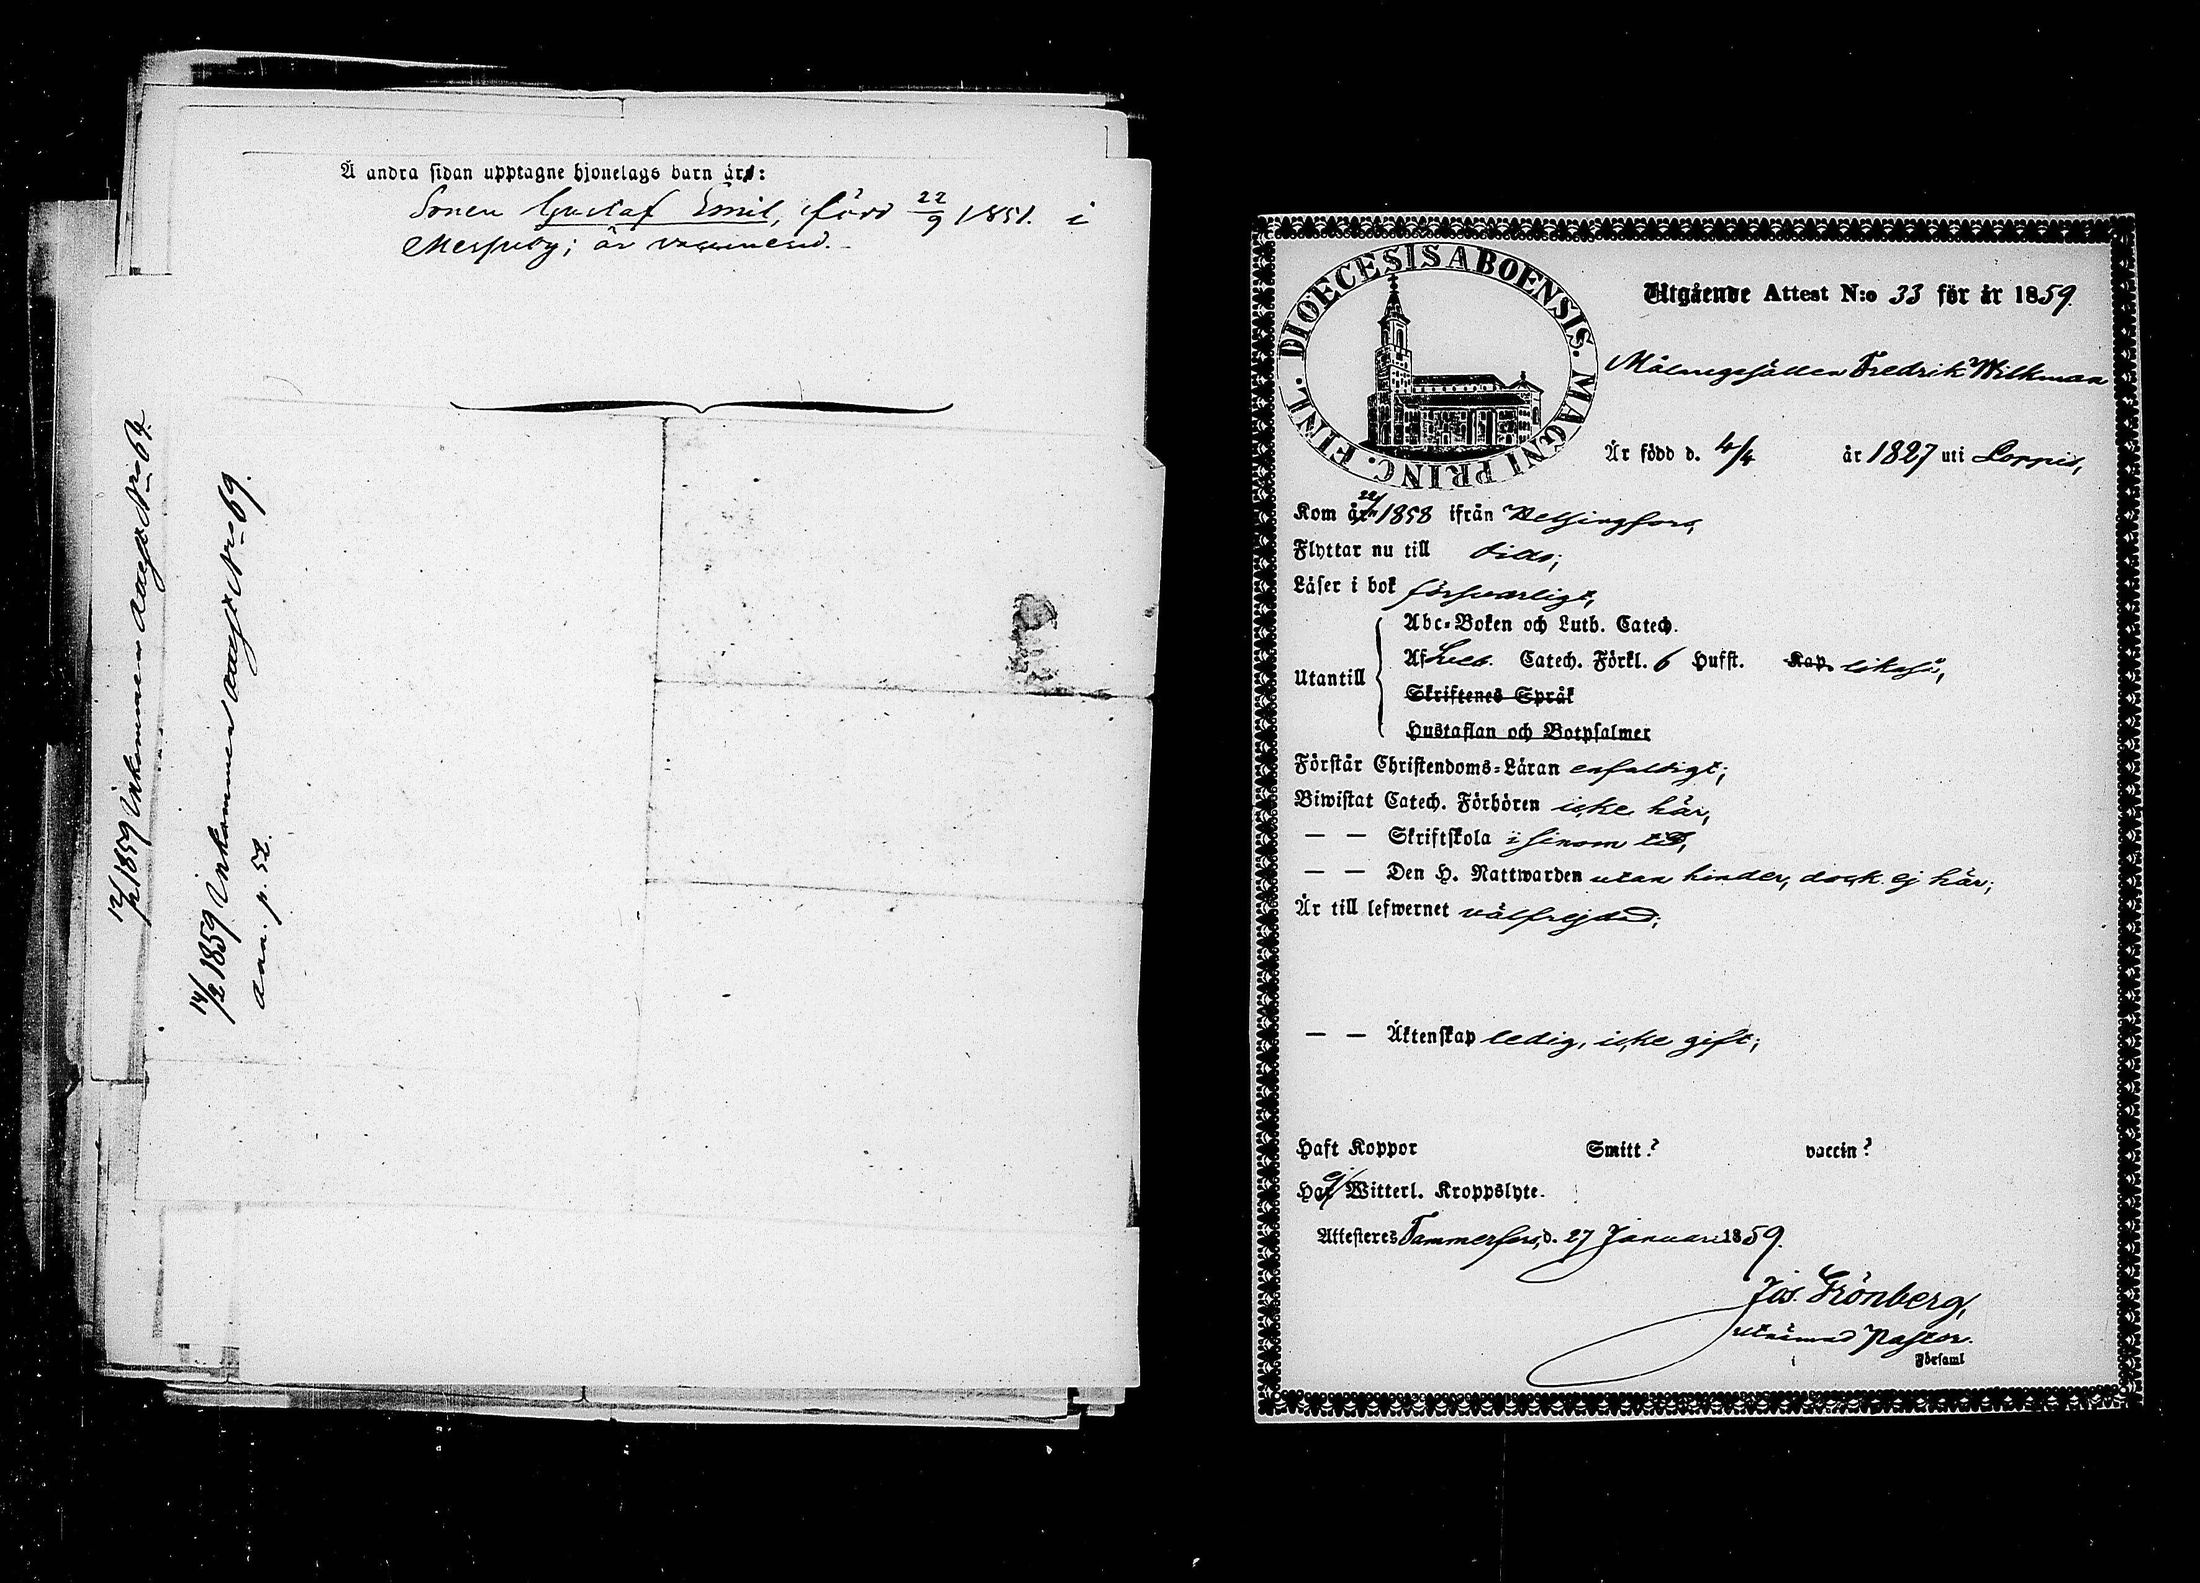 Å andra sidan upptagne hjonelags barn är:
Sonen Gustaf Emil, född 22/9 1851. i
Messuby; är vaccinerad.
12/2 1859 Inkommen attest Nro 64.
14/2 1859 Inkommen attest Nro 69.
ann. p. 52.
DIOECESIS ABOENSIS. MAGNI PRINC. FINL.
Utgående Attest N:o 33 för år 1859.
Målaregesällen Fredrik Wilkman
Är född d. 4/4 år 1827 uti Loppis,
Kom år 1858 ifrån Helsingfors,
Flyttar nu till dito;
Läser i bok försvarligt,
Utantill
Abc-Boken och Luth. Catech.
Af Luth. Catech. Förkl. 6 Hufst. Kap. likaså,
Skriftenes Språk
Hustaflan och Botpsalmer
Förstår Christendoms-Läran enfaldigt;
Biwistat Catech. Förhören icke här,
— — Skriftskola i sinom tid,
— — Den H. Nattwarden utan hinder, dock ej här;
Är till lefwernet välfrejdad;
— — Äktenskap ledig, icke gift;
Haft Koppor Smitt.? vaccin?
Har ej Witterl. Kroppslyte.
Attesteres Tammerfors, d. 27 Januari 1859.
Jos. Grönberg,
utnämnd Pastor.
i Församl